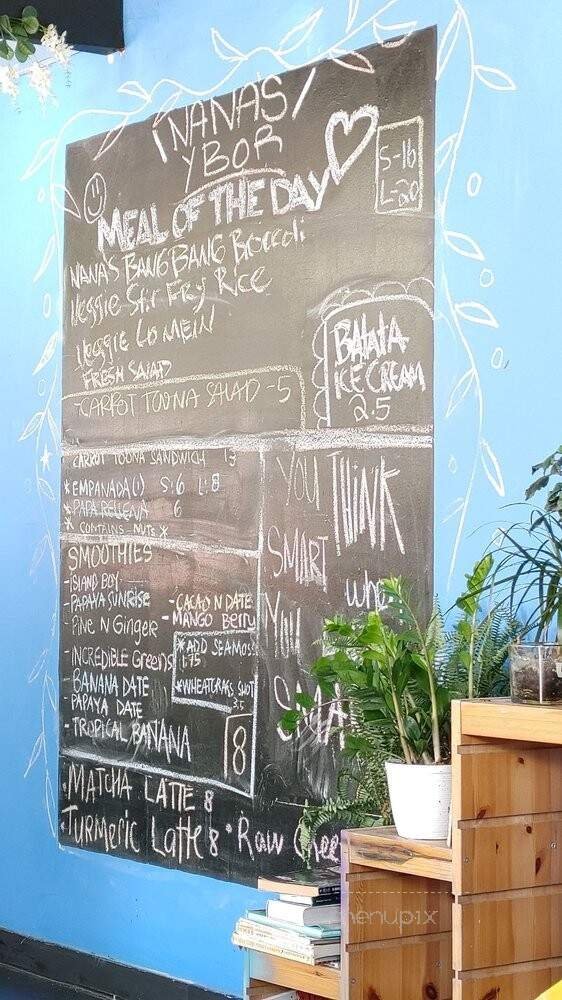 NANA'S
YBOR
S-16
L-20
MEAL OF THE DAY
NANA'S BANG BANG Broccoli
Veggie Stir Fry Rice
Veggie Lo MEIN
FRESH SALAD
-CARROT TOONA SALAD -5
BATATA
ICE CREAM
2.5
CARROT TOONA SANDWICH 13
*EMPANADA(1) S:6 L:8
*PAPA RELLENA 6
* CONTAINS NUTS *
SMOOTHIES
-ISLAND BOY
-PAPAYA SUNRISE
-Pine N Ginger
-INCREDIBLE Greens
BANANA DATE
PAPAYA DATE
-TROPICAL BANANA
-CACAO N DATE
-MANGO Berry
*ADD SEAMOSS
1.75
*WHEATGRASS SHOT
3.5
8
YOU THINK
SMART
whe
YOU
•MATCHA LATTE 8
•Turmeric Latte 8 •Raw Chee
menupix